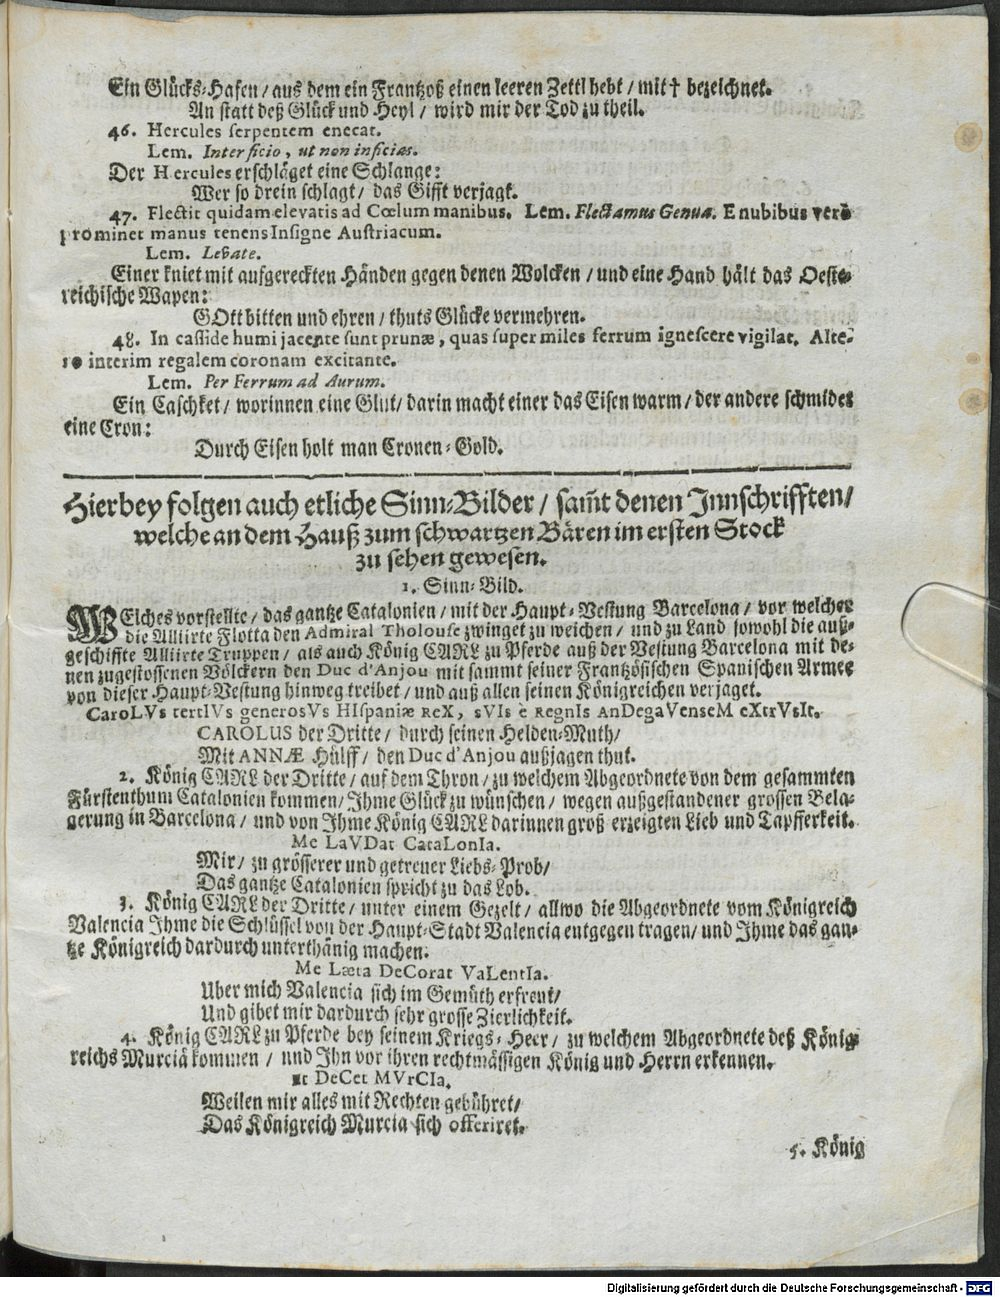 Ein Glücks-Hafen / aus dem ein Frantzoß einen leeren Zettl hebt / mit † bezeichnet.
An statt deß Glück und Heyl / wird mir der Tod zu theil.
46. Hercules serpentem enecat.
Lem. Interficio, ut non inficias.
Der Hercules erschläget eine Schlange:
Wer so drein schlagt / das Gifft verjagt.
47. Flectit quidam elevatis ad Cœlum manibus. Lem. Flectamus Genua. E nubibus verò
prominet manus tenens Insigne Austriacum.
Lem. Levate.
Einer kniet mit aufgereckten Händen gegen denen Wolcken / und eine Hand hält das Oeste-
reichische Wapen:
GOtt bitten und ehren / thuts Glücke vermehren.
48. In casside humi jacente sunt prunæ, quas super miles ferrum ignescere vigilat. Alte-
ro interim regalem coronam excitante.
Lem. Per Ferrum ad Aurum.
Ein Caschket / worinnen eine Glut / darin macht einer das Eisen warm / der andere schmidet
eine Cron:
Durch Eisen holt man Cronen-Gold.
Hierbey folgen auch etliche Sinn-Bilder / sam̃t denen Innschrifften /
welche an dem Hauß zum schwartzen Bären im ersten Stock
zu sehen gewesen.
1. Sinn-Bild.
WElches vorstellte / das gantze Catalonien / mit der Haupt-Vestung Barcelona / vor welcher
die Alliirte Flotta den Admiral Tholouse zwinget zu weichen / und zu Land sowohl die auß-
geschiffte Alliirte Truppen / als auch König CARL zu Pferde auß der Vestung Barcelona mit de-
nen zugestossenen Völckern den Duc d'Anjou mit sammt seiner Frantzösischen Spanischen Armee
von dieser Haupt-Vestung hinweg treibet / und auß allen seinen Königreichen verjaget.
CaroLVs tertIVs generosVs HIspaniæ REX, sVIs è REgnIs AnDegaVenseM eXtrVsIt.
CAROLUS der Dritte / durch seinen Helden-Muth /
Mit ANNÆ Hülff / den Duc d'Anjou außjagen thut.
2. König CARL der Dritte / auf dem Thron / zu welchem Abgeordnete von dem gesammten
Fürstenthum Catalonien kommen / Ihme Glück zu wünschen / wegen außgestandener grossen Bela-
gerung in Barcelona / und von Ihme König CARL darinnen groß erzeigten Lieb und Tapfferkeit.
Me LaVDat CataLonIa.
Mir / zu grösserer und getreuer Liebs-Prob /
Das gantze Catalonien spricht zu das Lob.
3. König CARL der Dritte / unter einem Gezelt / allwo die Abgeordnete vom Königreich
Valencia Ihme die Schlüssel von der Haupt-Stadt Valencia entgegen tragen / und Ihme das gan-
tze Königreich dardurch unterthänig machen.
Me Læta DeCorat VaLentIa.
Uber mich Valencia sich im Gemüth erfreut /
Und gibet mir dardurch sehr grosse Zierlichkeit.
4. König CARL zu Pferde bey seinem Kriegs-Heer / zu welchem Abgeordnete deß König-
reichs Murcia kommen / und Ihn vor ihren rechtmässigen König und Herrn erkennen.
DeCet MVrCIa.
Weilen mir alles mit Rechten gebühret /
Das Königreich Murcia sich offeriret.
5. König
Digitalisierung gefördert durch die Deutsche Forschungsgemeinschaft - DFG